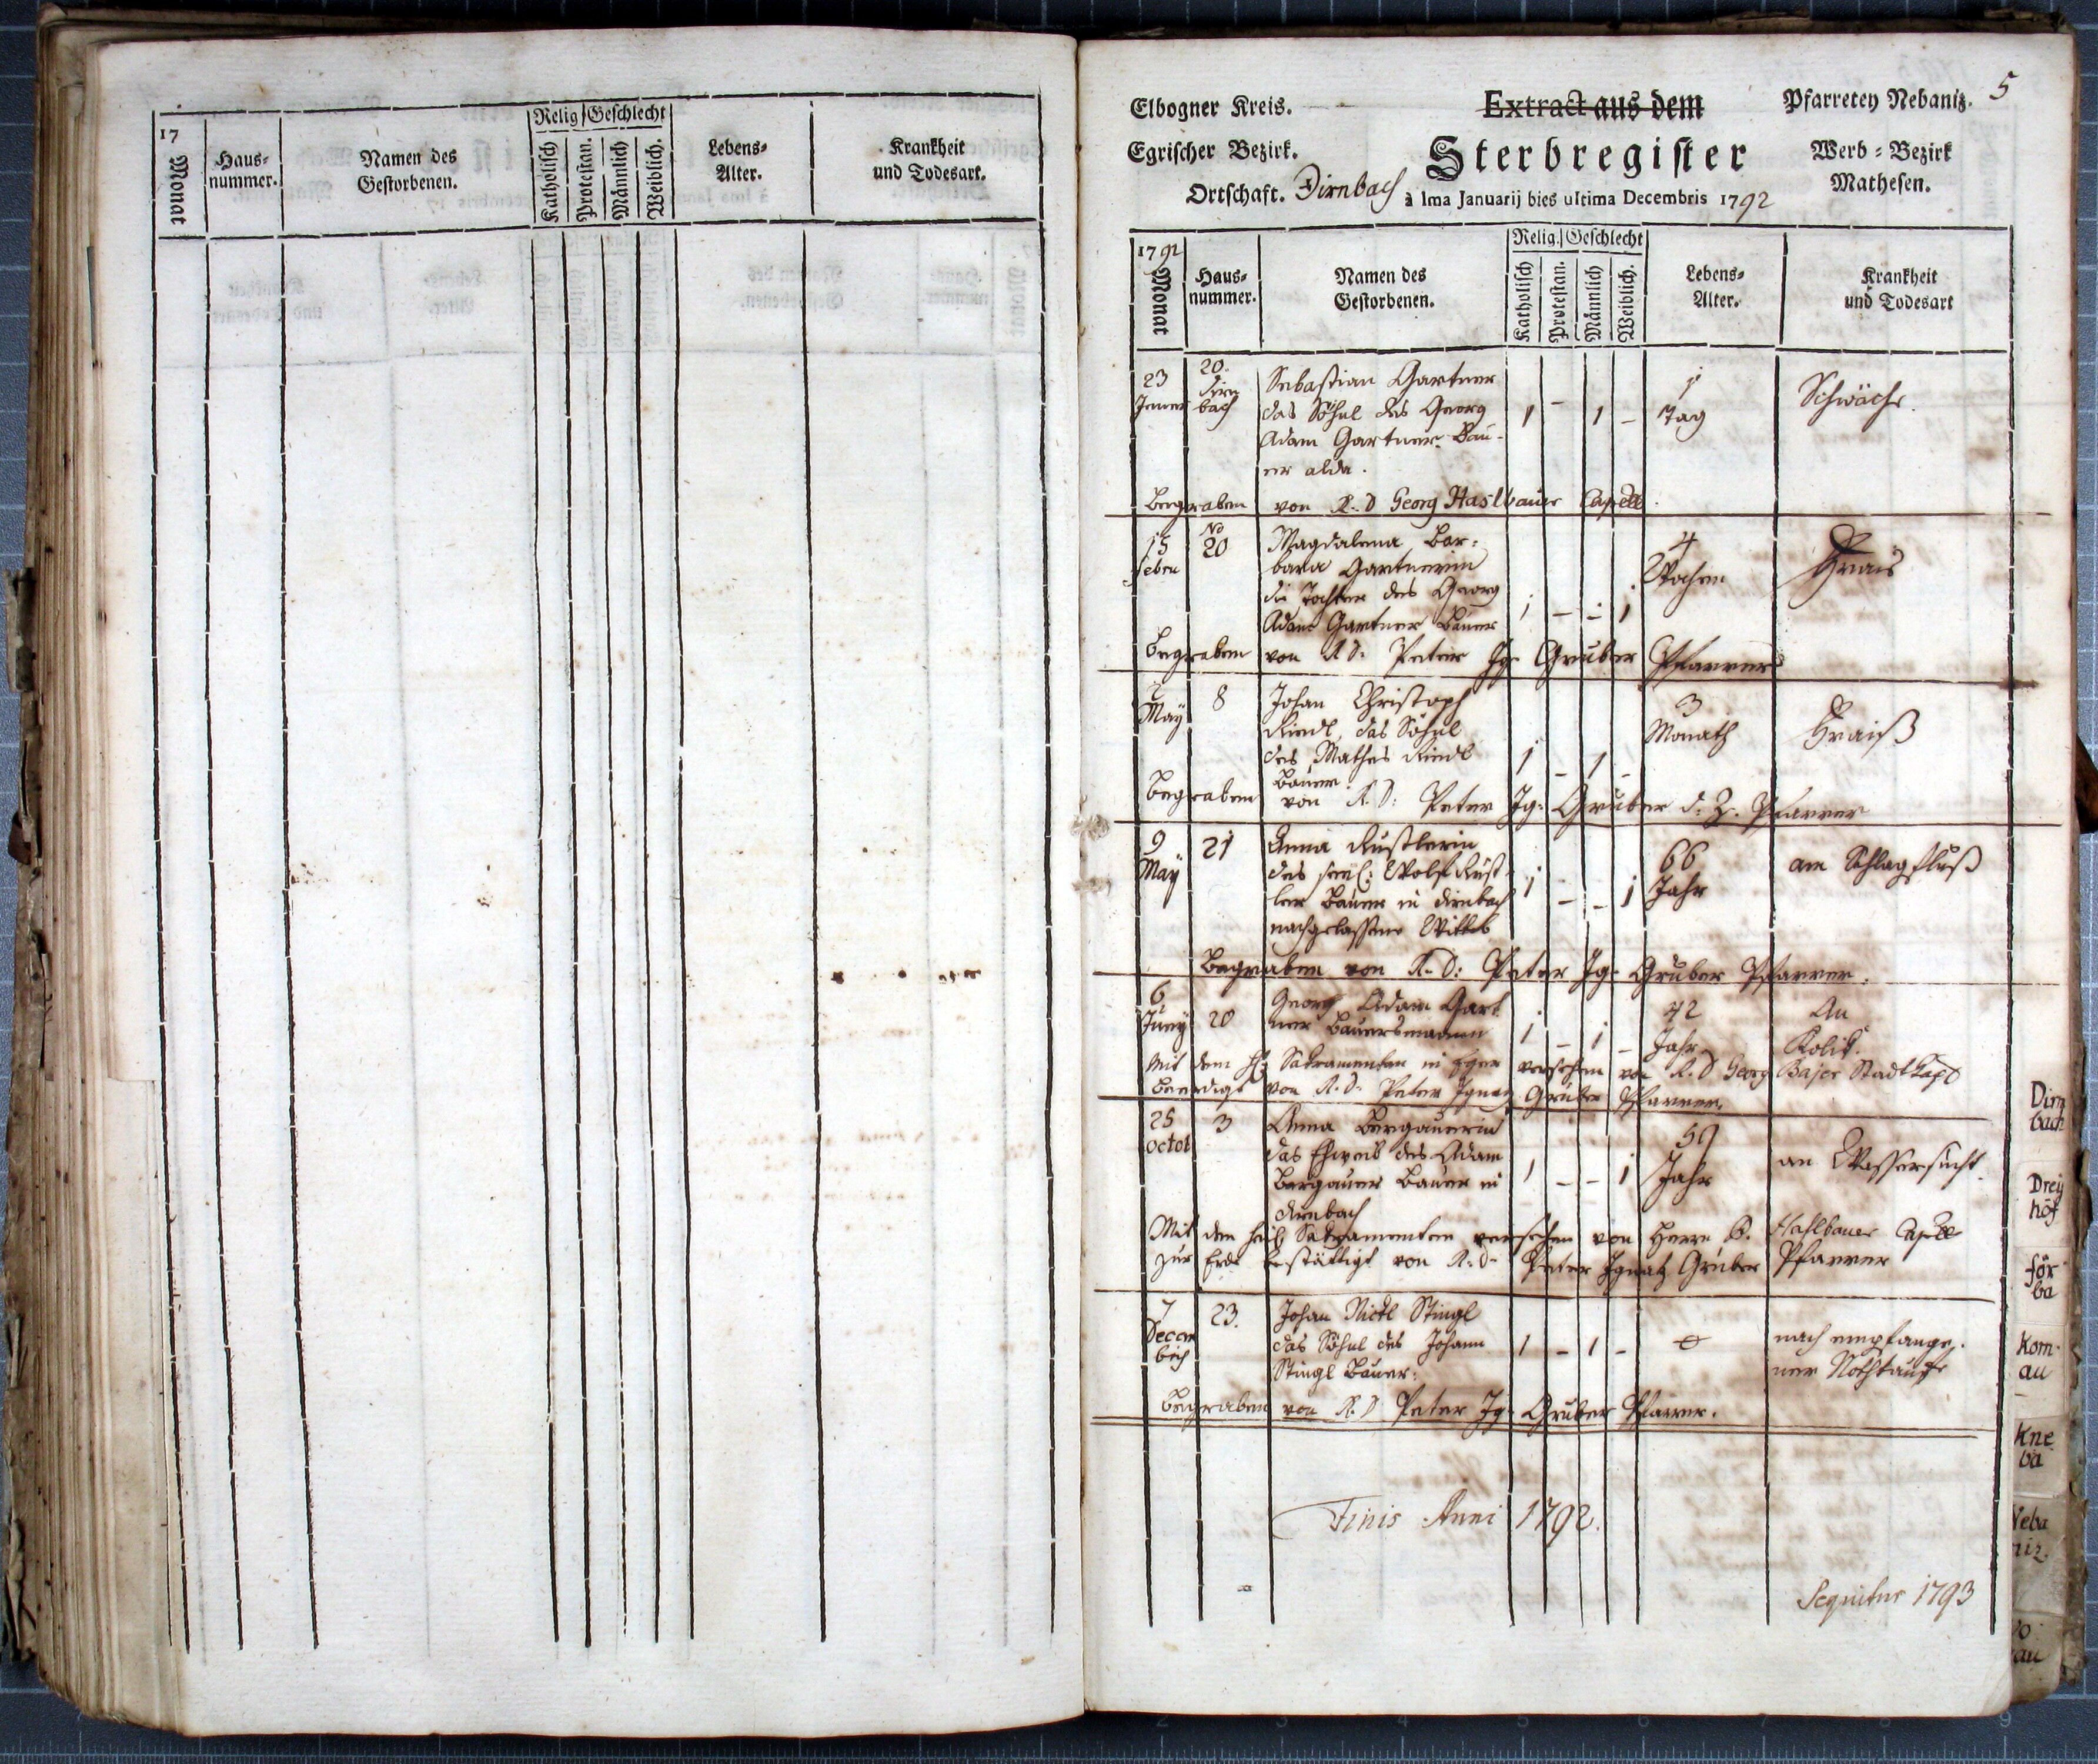 17
Monat
Haus-
nummer.
Namen des
Gestorbenen.
Relig. Geschlecht
Katholisch
Protestan.
Männlich
Weiblich.
Lebens-
Alter.
Krankheit
und Todesart.
5
Elbogner Kreis.
Extract aus dem
Pfarretey Nebaniz.
Egrischer Bezirk.
Sterbregister
Werb-Bezirk
Mathesen.
Ortschaft. Dirnbach à Ima Januarij bies ultima Decembris 1792
1792
Monat
Haus-
nummer.
Namen des
Gestorbenen.
Relig. Geschlecht
Katholisch
Protestan.
Männlich
Weiblich.
Lebens-
Alter.
Krankheit
und Todesart
23 Jener
20. Dirnbach
Sebastian Gartner
das Söhnl des Georg
Adam Gartner Bau-
er alda.
1 – 1 –
1 Tag
Schwäche.
Begraben von R. D Georg Haslbauer Capell.
15 Febru
No 20
Magdalena Bar-
bara Gartnerin
die Tochter des Georg
Adam Gartner Bauer
1 – – 1
4 Wochen
Frais
Begraben von R D: Peter Ig. Gruber Pfarrer
2 May
8
Johan Christoph
Riedl, das Söhnl
des Mathes Riedl
Bauer
1 – 1 –
3 Monath
Fraiß
Begraben von R. D: Peter Ig: Gruber d. Z. Pfarrer
9 May
21
Anna Rustlerin
des seel: Wolf Rust-
ler Bauer in Dirnbach
nachgelassene Wittib
1 – – 1
66 Jahr
am Schlagfluß
Begraben von R. D: Peter Ig. Gruber Pfarrer.
6 Juny
20
Georg Adam Gart
ner Bauersmann
1 – 1 –
42 Jahr
An
Kolik.
Mit dem Hl: Sakramenten in Eger versehen von R. D Georg Bajer Stadtkapl
Beerdigt von R. D. Peter Ignaz Gruber Pfarrer.
25 octob
3
Anna Bergauerin
das Eheweib des Adam
Bergauer Bauer in
Dirnbach
1 – – 1
59 Jahr
an Wassersucht.
Mit den heil. Sakramenten versehen von Herrn G. Haslbauer Capell
zur Erde bestättigt von R. D. Peter Ignatz Gruber Pfarrer
7 Decem
bris
23.
Johan Nickl Stingl
das Söhnl des Johann
Stingl Bauer:
1 – 1 –
0
nach empfange-
ner Nothtaufe
Begraben von R. D Peter Ig. Gruber Pfarrer.
Finis Anni 1792.
Sequitur 1793
Dirn
bach
Drey
höf
för
ba
Kom-
au
Kne
ba
Neba
niz.
au